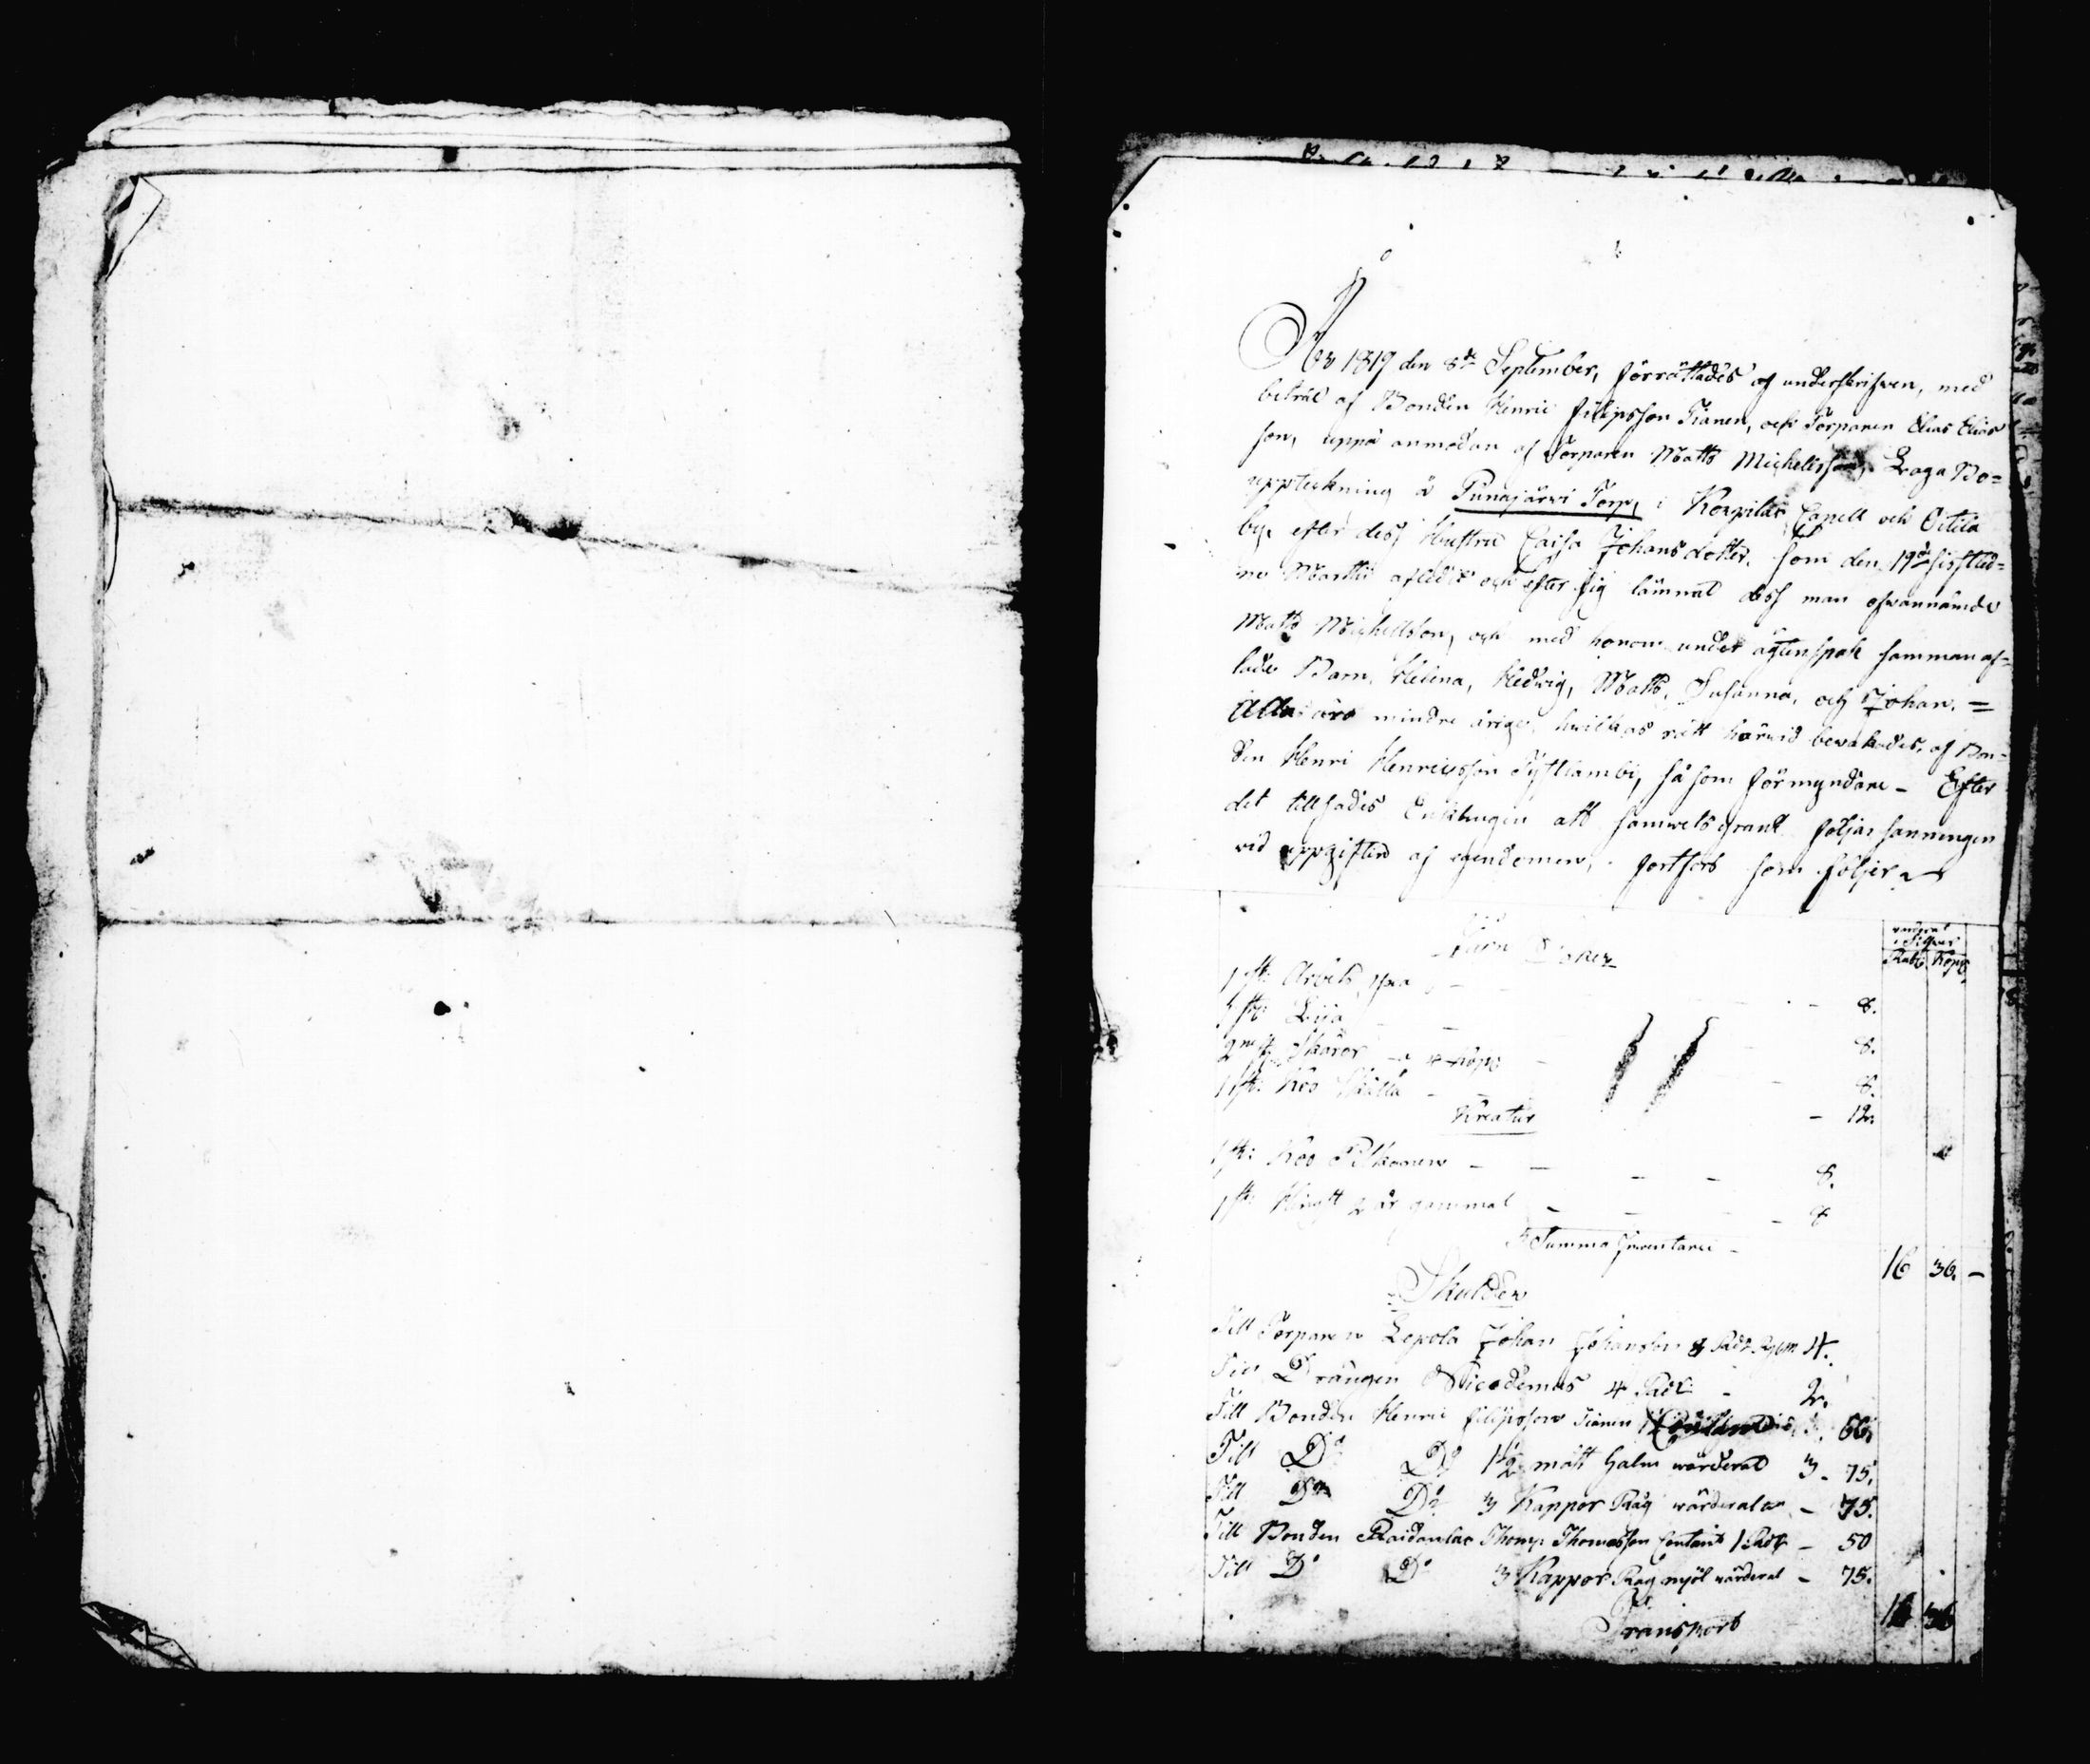 År 1819 den 8de September, förrättades af underskrifven, med
biträde af Bonden Henric Filipsson Tianen, och Torparen Elias Elias
son, uppå anmodan af Torparen Matts Michelsson, Laga Bo=
uppteckning å Punajärvi Torp, i Korpilax Capell och Oitila
by, efter dess Hustru Caisa Johansdotter, som den 19de sistled=
ne Martii afledit och efter sig lämnat dess man ofvannämde
Matts Michellsson, och med honom under ägtenskap samman af=
lade Barn, Helena, Hedvig, Matts, Susanna, och Johan. =
Alla äro mindre årige, hvilkas rätt härvid bevakades, af Bon=
den Henri Henricsson, såsom förmyndare – Efter
det tillsades Enklingen att samvetsgrant följa sanningen
vid uppgiften af egendomen, fortfors som följer
värderat
i Silfver
Rub: Kop:
Jern Saker
1 st: Arbets yxa – 8.
1 st: Lija – 8.
2ne st: Skäror – a 4 Kop: – 8.
1 st: Koo Skälla – 12.
Kreatur
1 st: Koo – – – – 8.
1 st: Hingst 2 år gammal – – – 8
Summa Inventarii – 16 36. –
Skulder
Till Torparen Lepola Johan Johansson 8 Rdr Rgbm 4.
Till Drängen Nicodemus 4 Rdr – 2.
Till Bonden Henric Filipsson Tianen 66.
Till Do Do 1½ mått halm värderad 3. 75.
Till Do Do 3 Kappor Råg värderat – 75.
Till Bonden Thom: Thomasson Contant 1 Rdr – 50
Till Do Do 3 Kappor Råg mjöl värderat – 75.
Transport 16 36